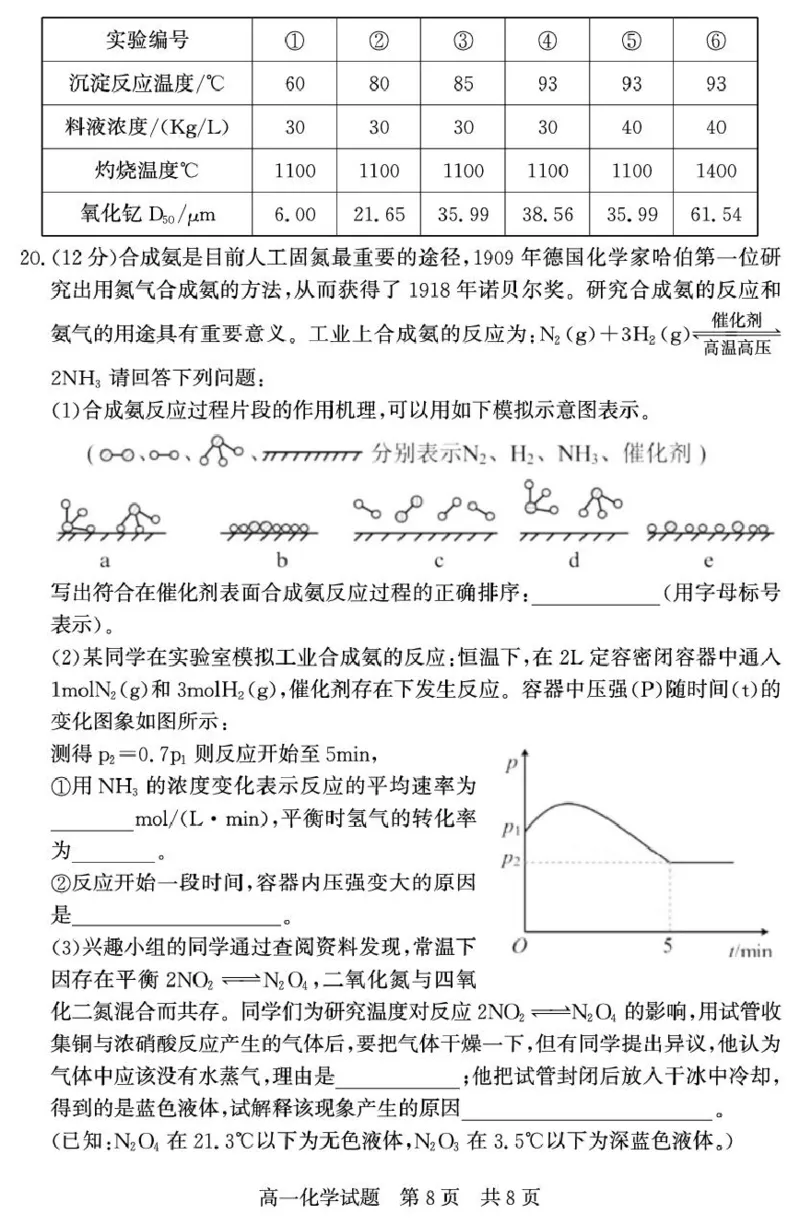 实验编号 ① ② ③ ④ ⑤ ⑥
沉淀反应温度/℃ 60 80 85 93 93 93
料液浓度/(Kg/L) 30 30 30 30 40 40
灼烧温度℃ 1100 1100 1100 1100 1100 1400
氧化钇 D₅₀/μm 6.00 21.65 35.99 38.56 35.99 61.54
20.(12分)合成氨是目前人工固氮最重要的途径,1909年德国化学家哈伯第一位研
究出用氮气合成氨的方法,从而获得了1918年诺贝尔奖。研究合成氨的反应和
氨气的用途具有重要意义。工业上合成氨的反应为:N₂(g)+3H₂(g)⇌催化剂 高温高压
2NH₃ 请回答下列问题:
(1)合成氨反应过程片段的作用机理,可以用如下模拟示意图表示。
( 、 、 、 分别表示N₂、H₂、NH₃、催化剂 )
a b c d e
写出符合在催化剂表面合成氨反应过程的正确排序:____________(用字母标号
表示)。
(2)某同学在实验室模拟工业合成氨的反应:恒温下,在2L定容密闭容器中通入
1molN₂(g)和3molH₂(g),催化剂存在下发生反应。容器中压强(P)随时间(t)的
变化图象如图所示:
测得 p₂=0.7p₁ 则反应开始至5min,
①用 NH₃ 的浓度变化表示反应的平均速率为
________mol/(L·min),平衡时氢气的转化率
为________。
②反应开始一段时间,容器内压强变大的原因
是____________________。
p
p₁
p₂
O 5 t/min
(3)兴趣小组的同学通过查阅资料发现,常温下
因存在平衡 2NO₂⇌N₂O₄,二氧化氮与四氧
化二氮混合而共存。同学们为研究温度对反应 2NO₂⇌N₂O₄ 的影响,用试管收
集铜与浓硝酸反应产生的气体后,要把气体干燥一下,但有同学提出异议,他认为
气体中应该没有水蒸气,理由是____________;他把试管封闭后放入干冰中冷却,
得到的是蓝色液体,试解释该现象产生的原因________________________。
(已知:N₂O₄ 在21.3℃以下为无色液体,N₂O₃ 在3.5℃以下为深蓝色液体。)
高一化学试题 第8页 共8页